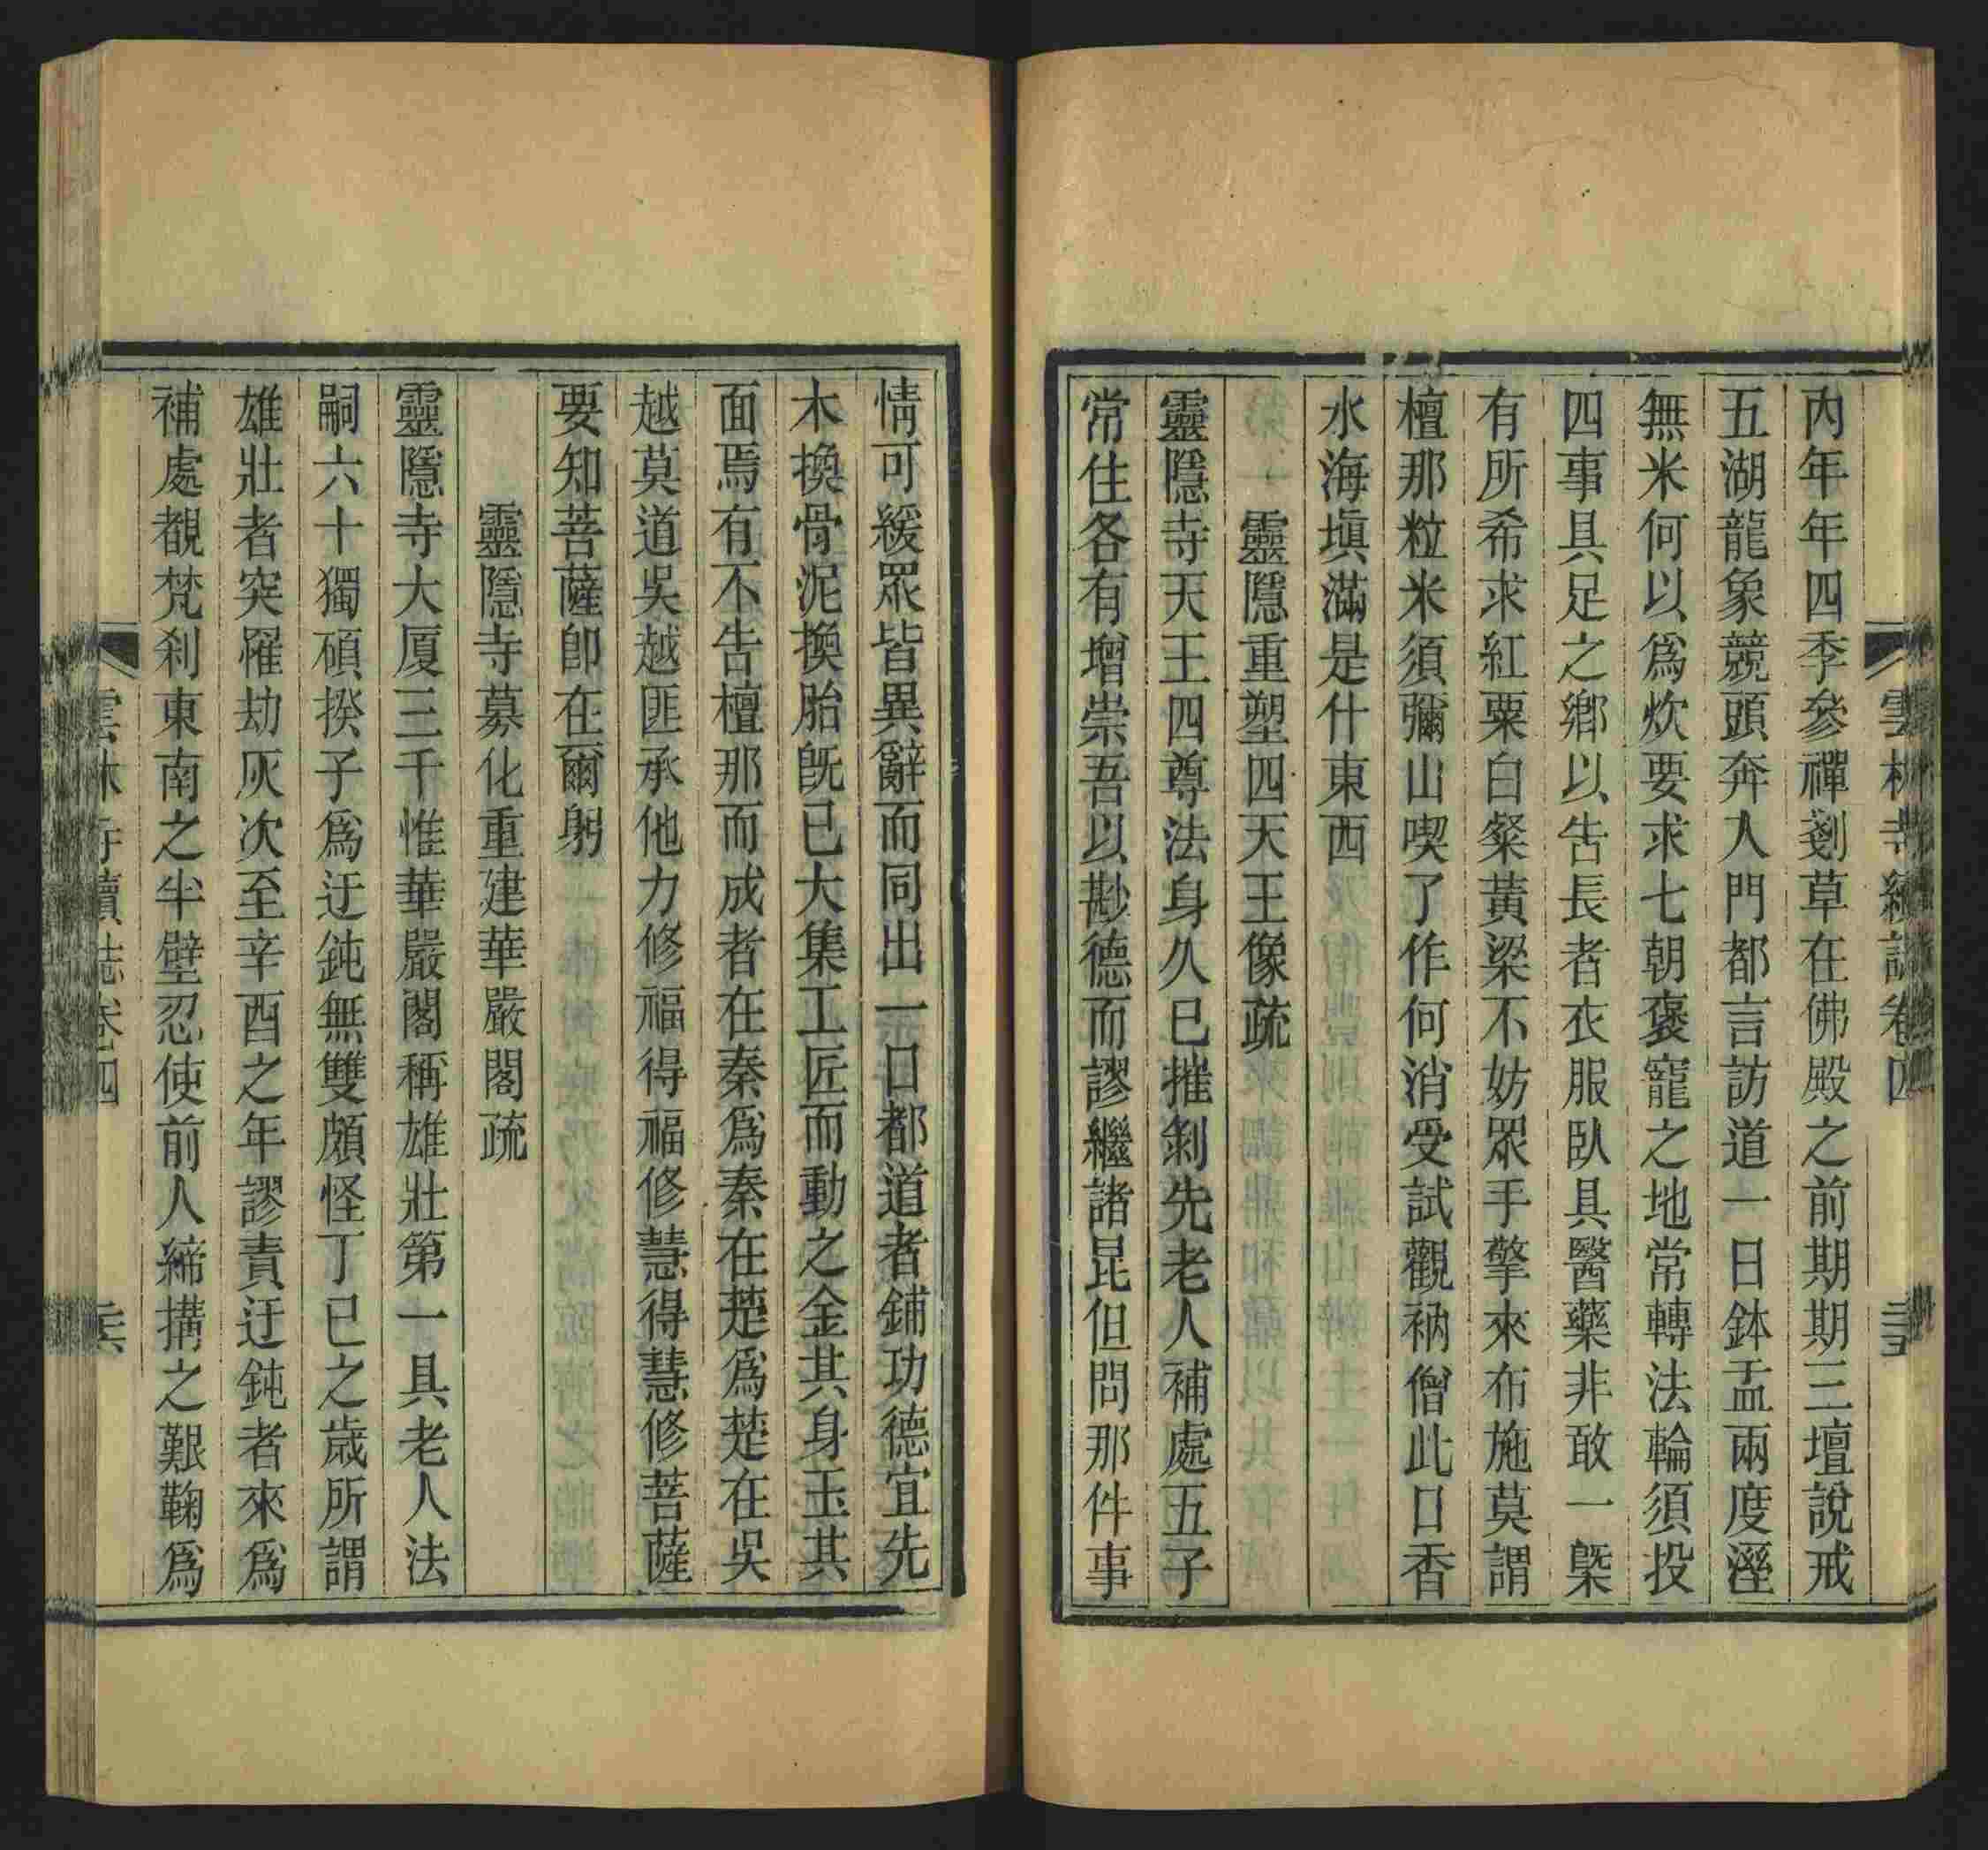 雲林寺續誌卷四
內年年四季參禪剗草在佛殿之前期期三壇說戒
五湖龍象競頭奔人門都言訪道一日鉢盂兩度溼
無米何以爲炊要求七朝褒寵之地常轉法輪須投
四事具足之鄉以吿長者衣服臥具醫藥非敢一槩
有所希求紅粟白粲黃粱不妨眾手擎來布施莫謂
檀那粒米須彌山喫了作何消受試觀衲僧此口香
水海塡滿是什東西
靈隱重塑四天王像疏
靈隱寺天王四尊法身久已摧剝先老人補處五子
常住各有增崇吾以尠德而謬繼諸昆但問那件事
情可緩眾皆異辭而同出一口都道者鋪功德宜先
木換骨泥換胎旣已大集工匠而動之金其身玉其
面焉有不吿檀那而成者在秦爲秦在楚爲楚在吳
越莫道吳越匪承他力修福得福修慧得慧修菩薩
要知菩薩卽在爾躬
靈隱寺募化重建華嚴閣疏
靈隱寺大厦三千惟華嚴閣稱雄壯第一具老人法
嗣六十獨碩揆子爲迂鈍無雙頗怪丁已之歲所謂
雄壯者突罹劫灰次至辛酉之年謬責迂鈍者來爲
補處覩梵刹東南之半壁忍使前人締搆之艱鞠爲
雲林寺續誌卷四